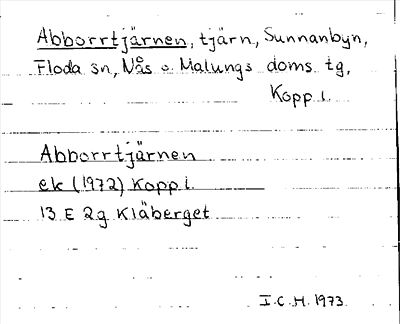 Abborrtjärnen, tjärn, Sunnanbyn,
Floda sn, Nås o. Malungs doms. tg,
Kopp l.
Abborrtjärnen
ek (1972) Kopp l.
13 E 2g Kläberget
I.C.H. 1973